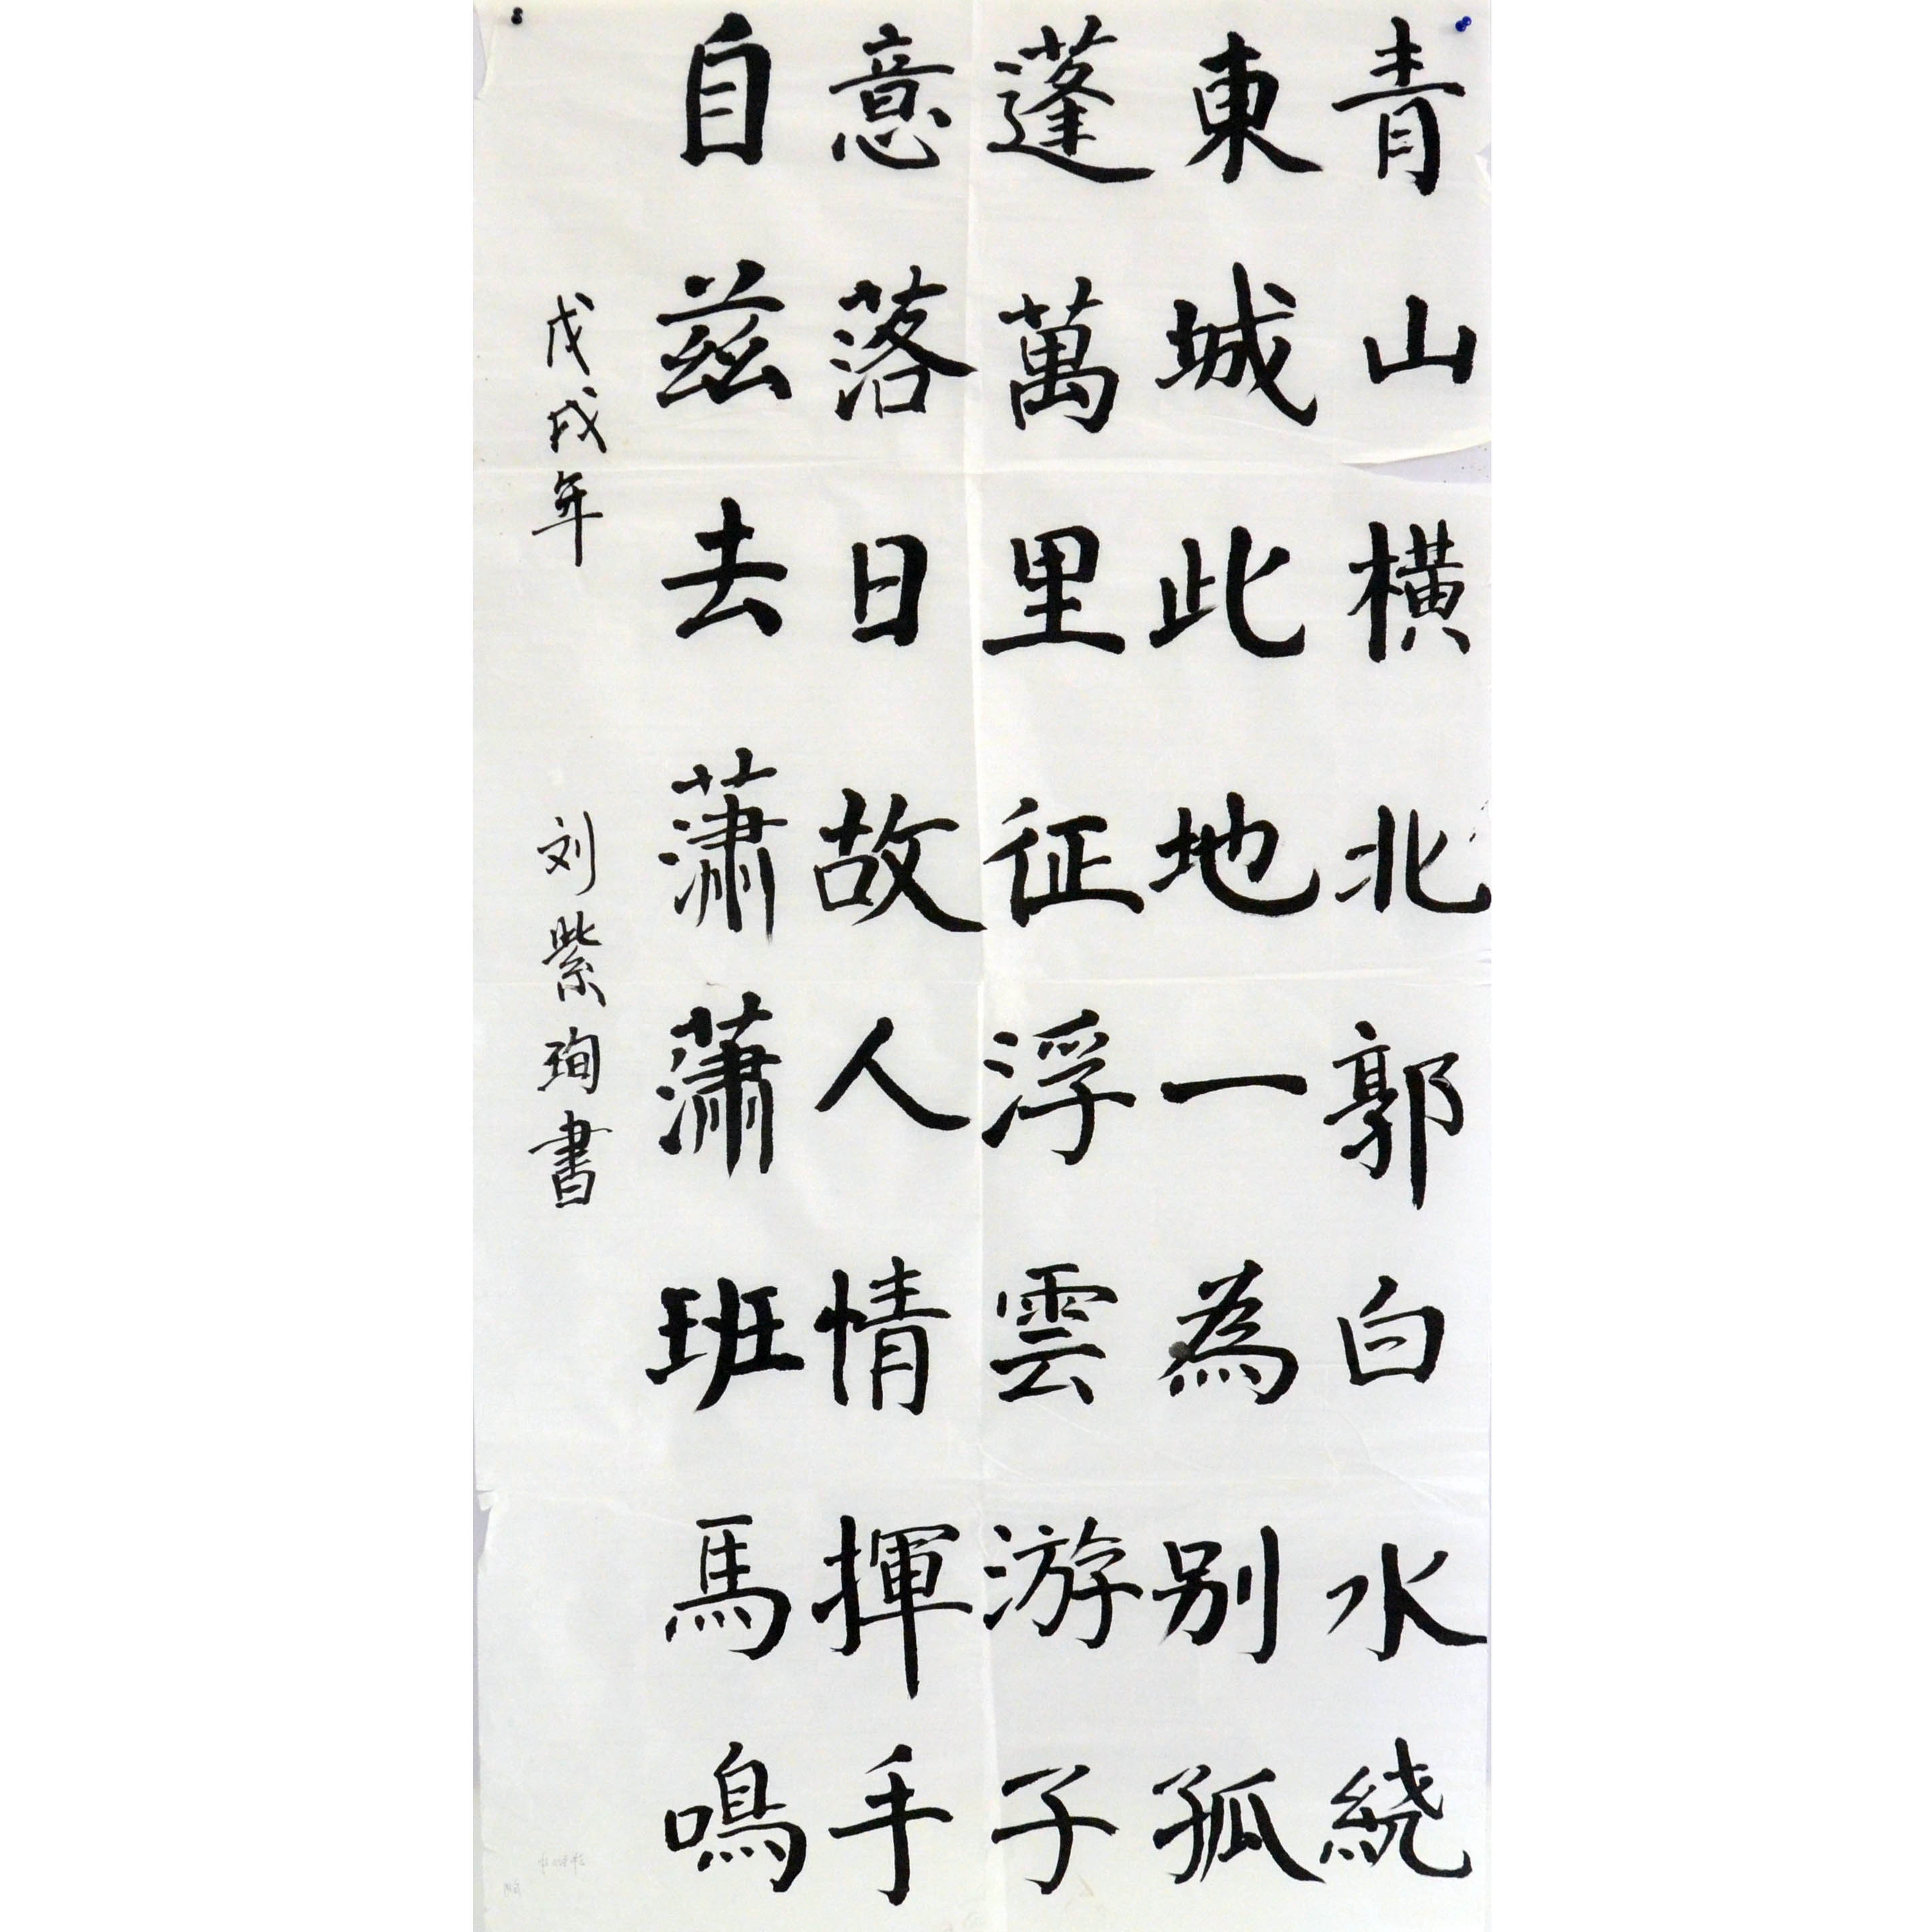 青山橫北郭白水繞
東城此地一為别孤
蓬萬里征浮雲游子
意落日故人情揮手
自茲去蕭蕭班馬鳴
戊戌年 刘紫珣書